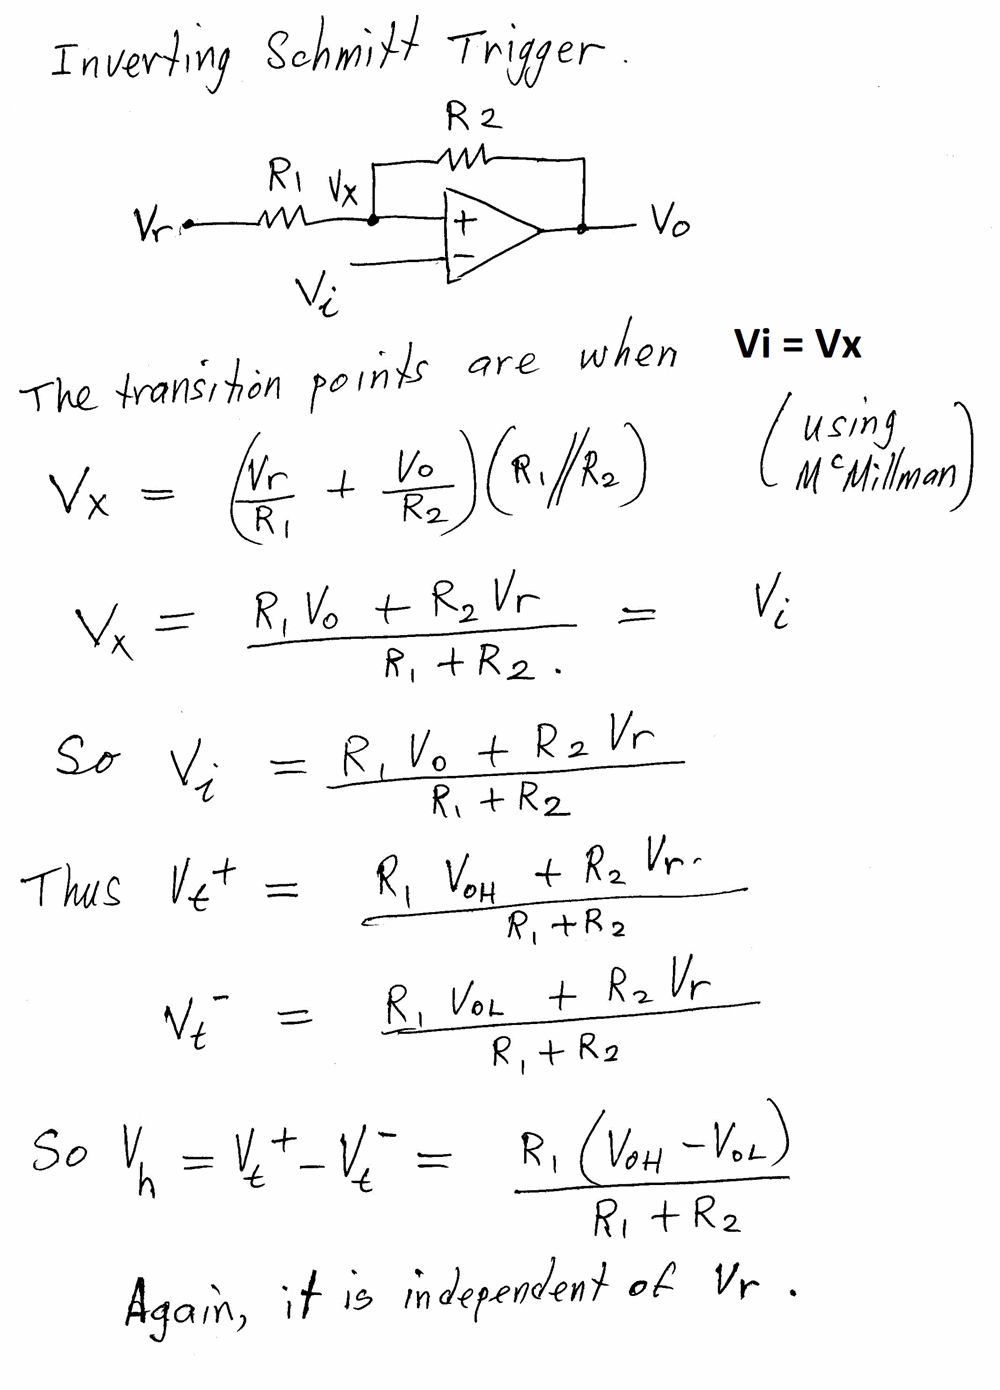 Inverting Schmitt Trigger.
R2
R1 Vx
Vr + Vo
Vi −
The transition points are when Vi = Vx
Vx = (Vr/R1 + Vo/R2)(R1//R2) (using McMillman)
Vx = (R1 Vo + R2 Vr)/(R1 + R2). = Vi
So Vi = (R1 Vo + R2 Vr)/(R1 + R2)
Thus Vt+ = (R1 VOH + R2 Vr)/(R1 + R2)
Vt- = (R1 VOL + R2 Vr)/(R1 + R2)
So Vh = Vt+ - Vt- = R1 (VOH - VOL)/(R1 + R2)
Again, it is independent of Vr.